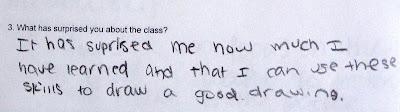 3. What has surprised you about the class?
It has suprised me how much I
have learned and that I can use these
skills to draw a good drawing.